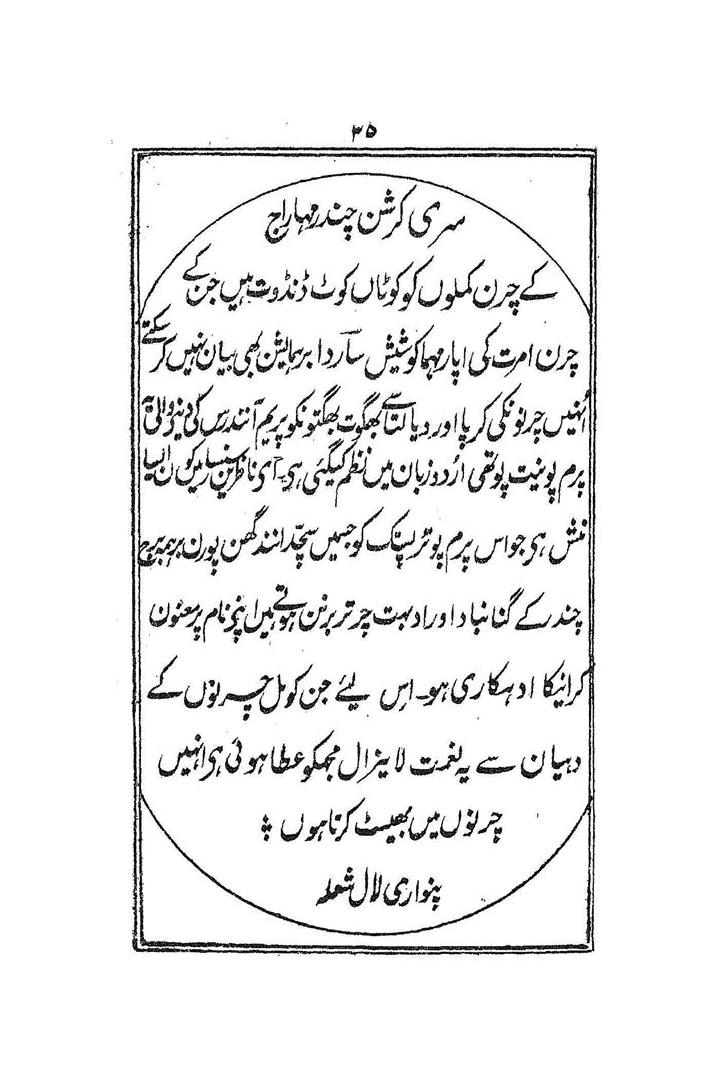 ۳۵
سری کرشن چندر مہاراج
کے چرن کملوں کو کوٹاں کوٹ ڈنڈوت ہیں جن کے
چرن امرت کی اپار مہما کو شیش ساردا برہما ایش بھی بیان نہیں کر سکتے
اُنہیں چرنونکی کرپا اور دیالتا سے بھگوت بھگتونکو پریم آنند رس کی دینے والی یہ
پرم پونیت پوتھی اردو زبان میں نظم کیگئی ہی۔ آی ناظرین سنسار میں کون ایسا
منش ہی جو اس پرم پوتر پستک کو جسمیں سچدانند گھن پورن برہم برج
چند کے گنانباد اور ادبہت چرتر برنن ہوتے ہیں اپنے نام پر معنون
کرانیکا ادہکاری ہو۔ اِس لیئے جن کومل چرنوں کے
دہیان سے یہ نعمت لایزال مجھکو عطا ہوئی ہی اُنہیں
چرنوں میں بھیٹ کرتا ہوں
بنواری لال شعلہ